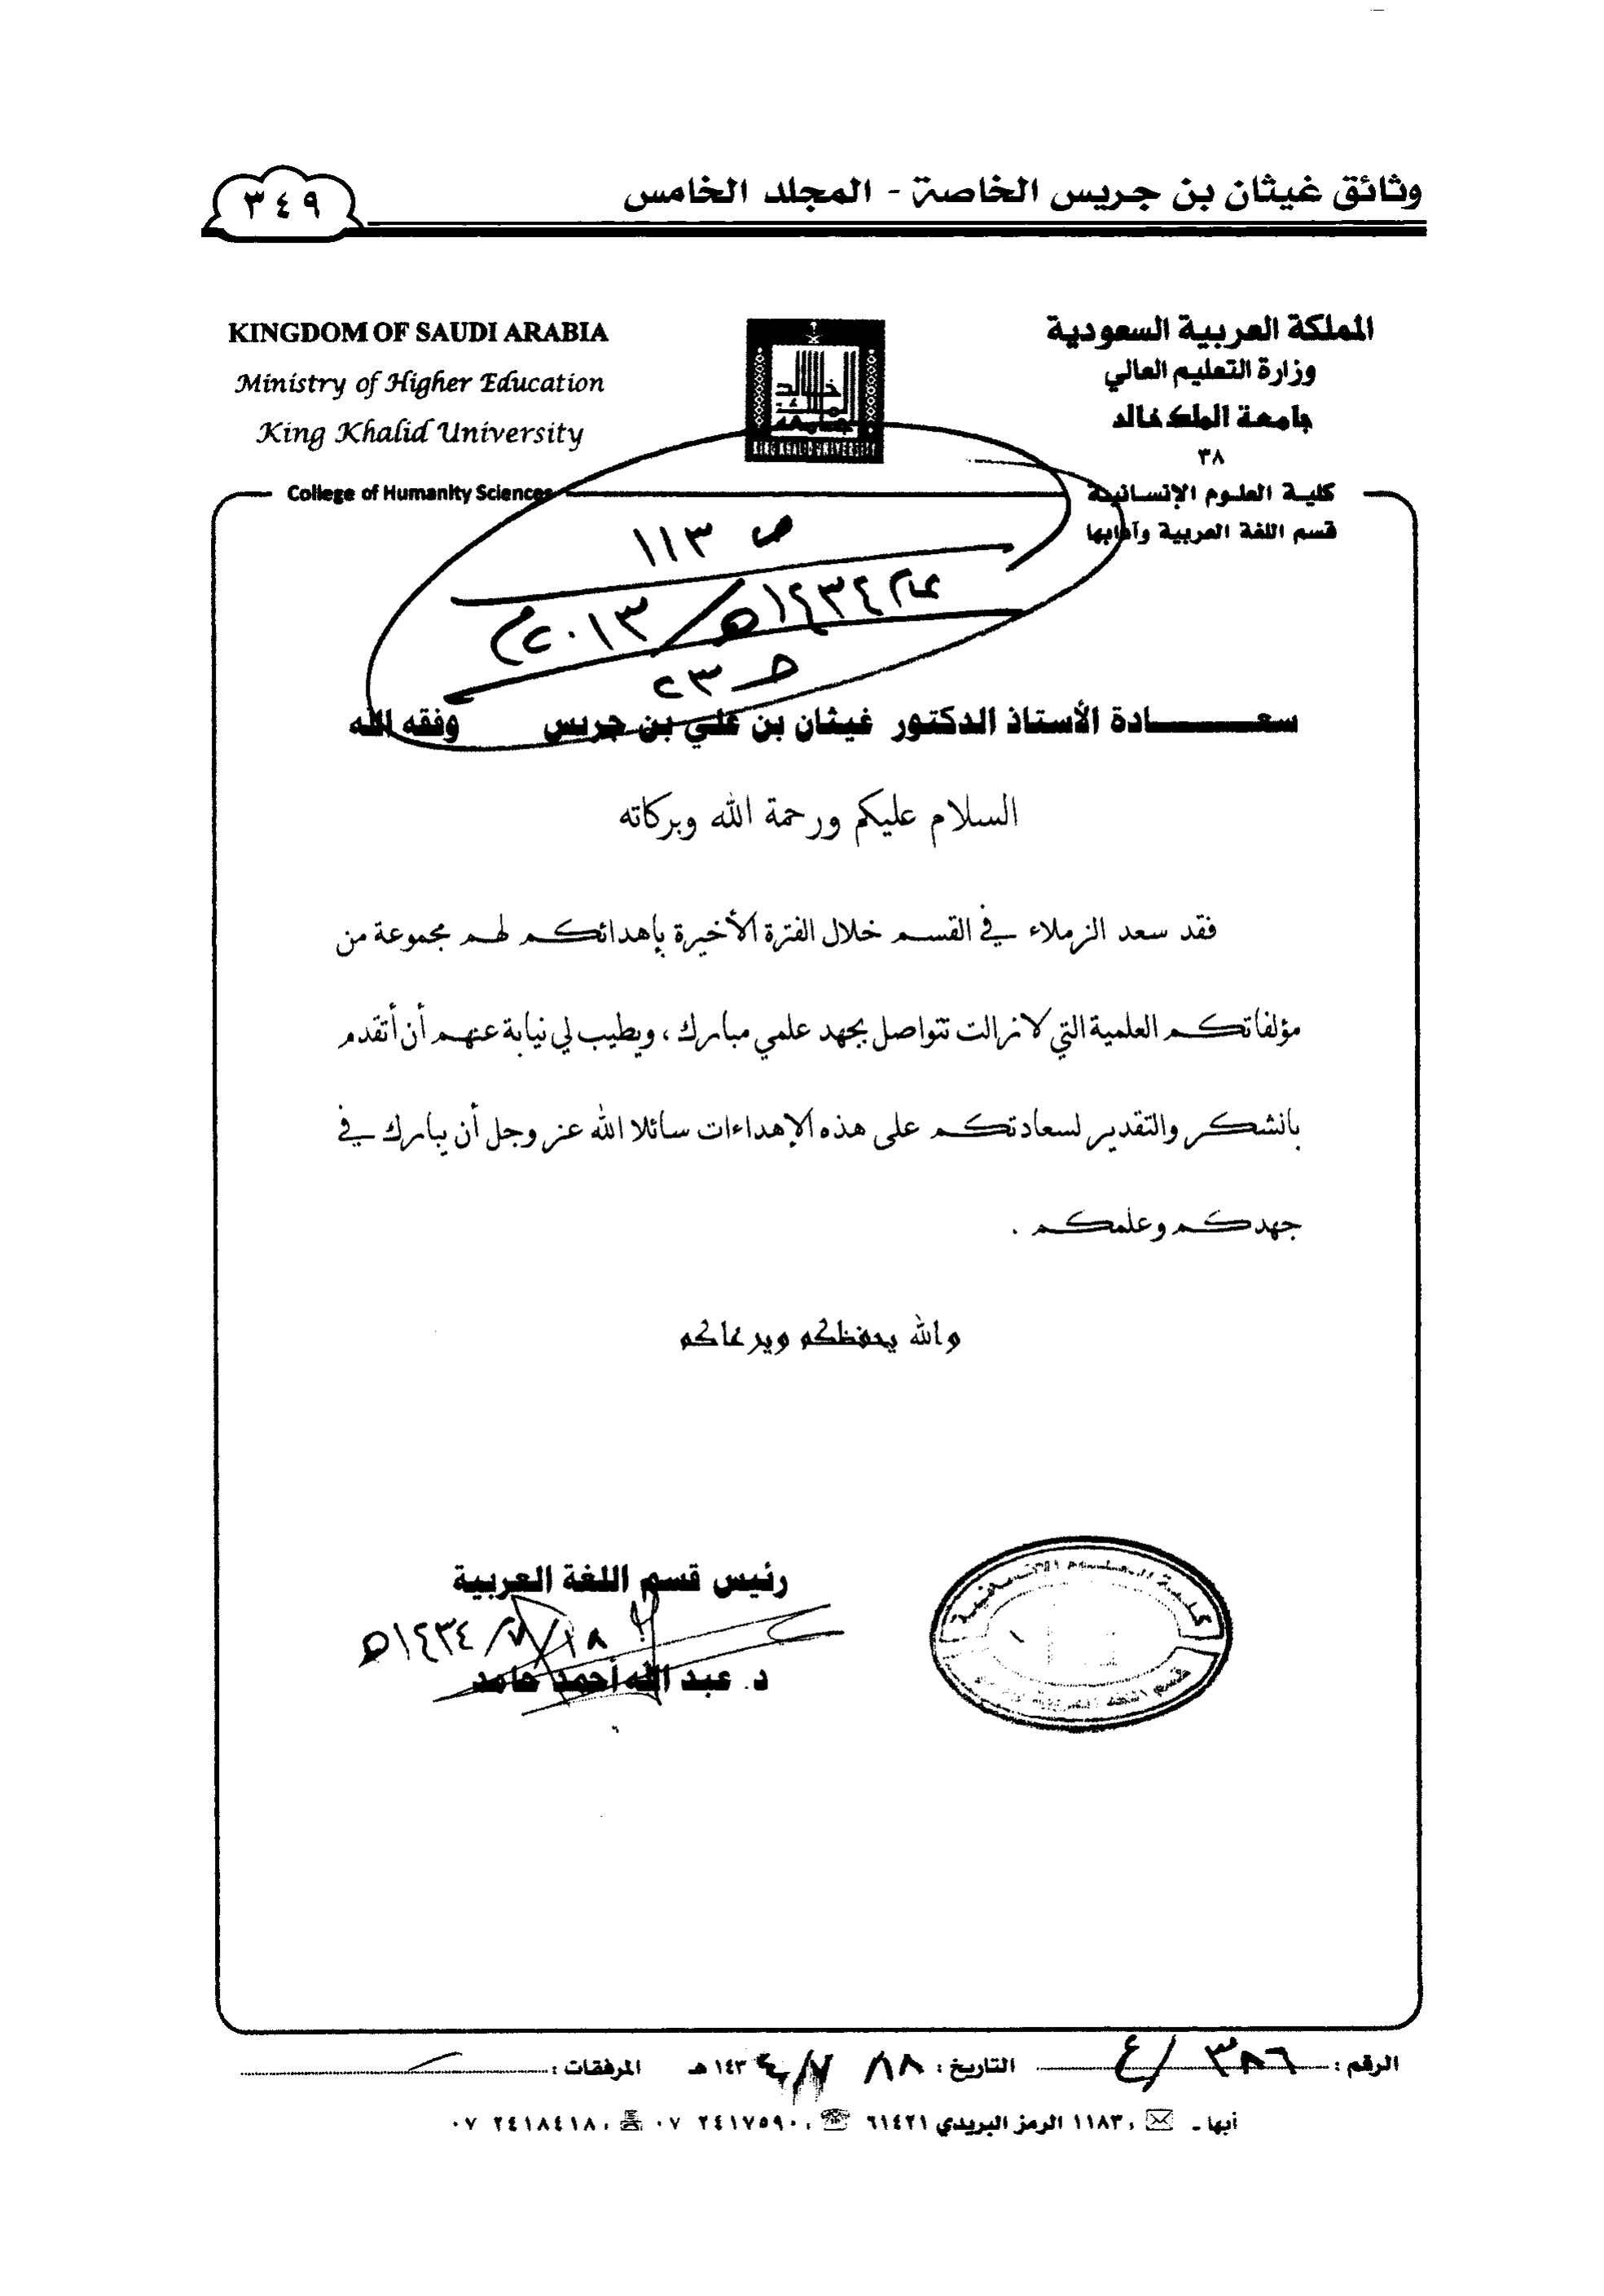 وثائق غيثان بن جريس الخاصة - المجلد الخامس
٣٤٩
المملكة العربية السعودية
وزارة التعليم العالي
جامعة الملك خالد
٣٨
كلية العلوم الإنسانية
قسم اللغة العربية وآدابها
KINGDOM OF SAUDI ARABIA
Ministry of Higher Education
King Khalid University
College of Humanity Sciences
KING KHALID UNIVERSITY
ص ١١٣
عام ١٤٣٤هـ / ٢٠١٣م
حـ ٢٣
سعـــــــادة الأستاذ الدكتور غيثان بن علي بن جريس وفقه الله
السلام عليكم ورحمة الله وبركاته
فقد سعد الزملاء في القسم خلال الفترة الأخيرة بإهدائكم لهم مجموعة من
مؤلفاتكم العلمية التي لا زالت تتواصل بجهد علمي مبارك ، ويطيب لي نيابة عنهم أن أتقدم
بالشكر والتقدير لسعادتكم على هذه الإهداءات سائلا الله عز وجل أن يبارك في
جهدكم وعلمكم .
والله يحفظكم ويرعاكم
رئيس قسم اللغة العربية
١٨/٧/١٤٣٤هـ
د. عبد الله أحمد حامد
كلية العلوم الإنسانية
الرقم : ٣٨٦ / ٤ التاريخ : ١٨ / ٧ / ١٤٣٤ هـ المرفقات :
أبها - ١١٨٣ الرمز البريدي ٦١٤٢١ ٠٧ ٢٤١٧٥٩٠ ٠٧ ٢٤١٨٤١٨